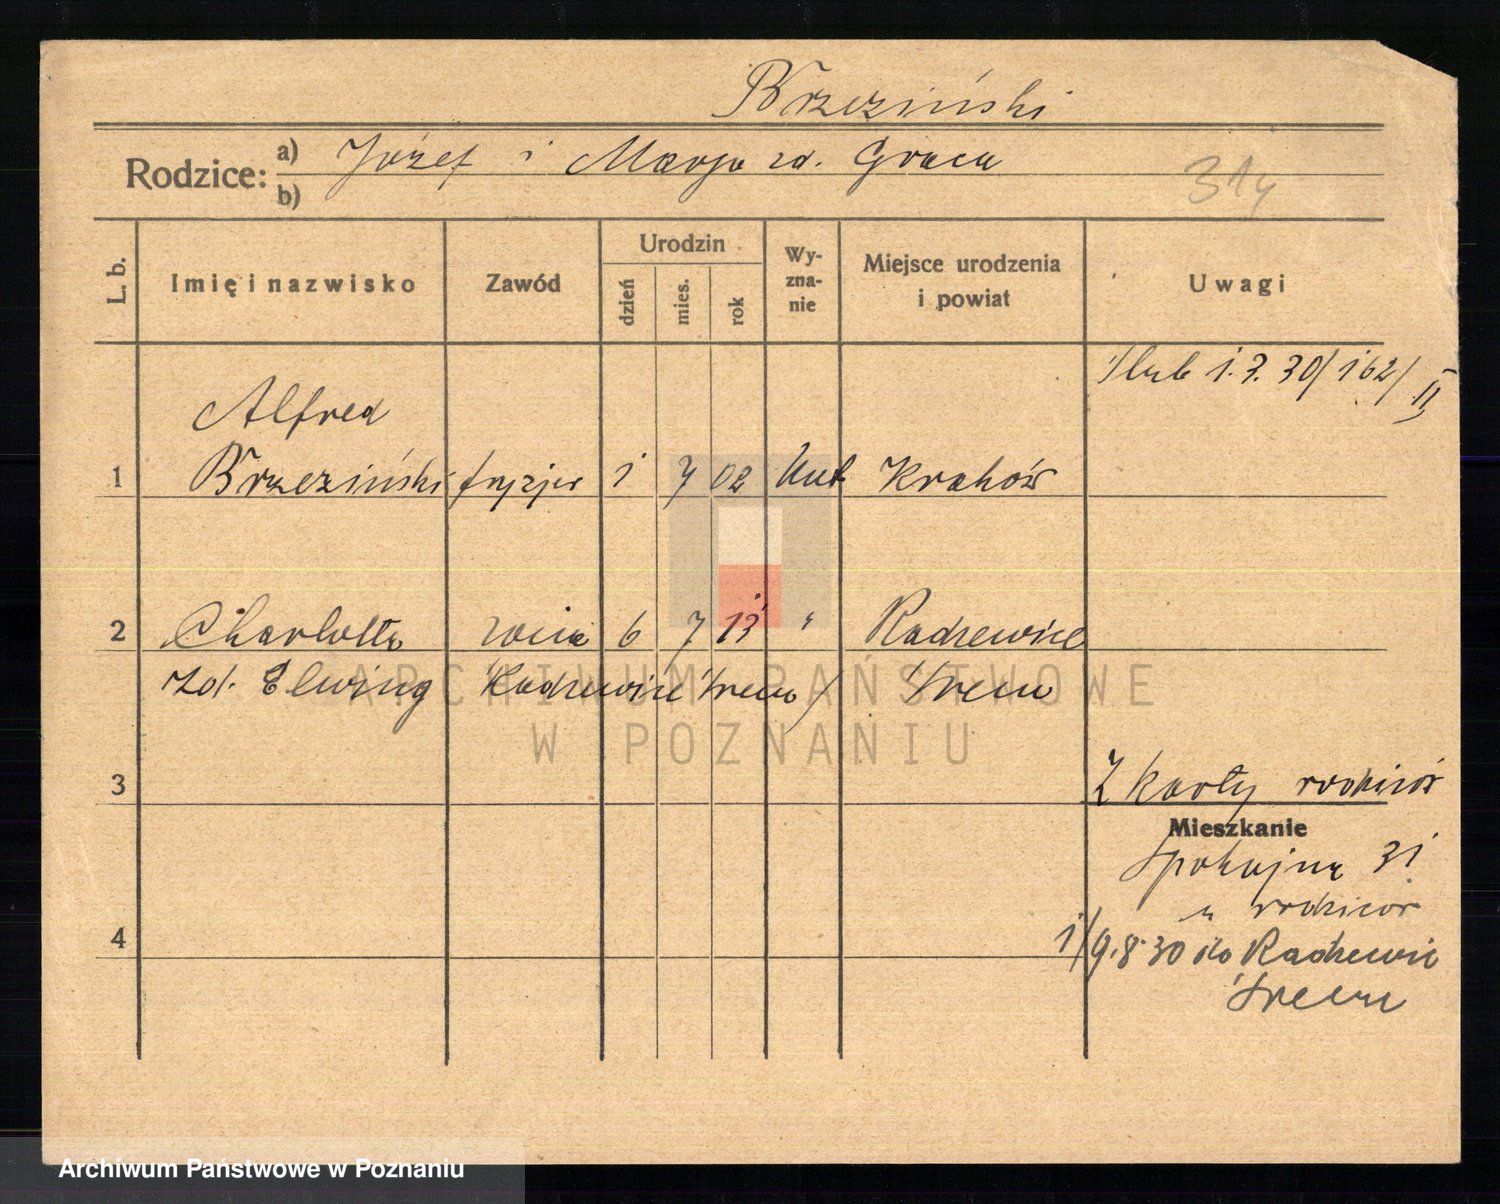 Brzeziński
Rodzice: a) Józef i Marya zd. Graca
b)
314
L. b. Imię i nazwisko Zawód Urodzin dzień mies. rok Wyznanie Miejsce urodzenia i powiat Uwagi
ślub 1.3.30/162/II
Alfred
1 Brzeziński fryzjer 1 7 02 kat Kraków
2 Charlotta żona 6 7 11 " Radzewice
zd. Elwing Radzewice Śrem / Śrem
3 Z karty rodziców
Mieszkanie
Spokojna 31
u rodziców
4 1/9.8.30 do Radzewic
Śrem
ARCHIWUM PAŃSTWOWE
W POZNANIU
Archiwum Państwowe w Poznaniu